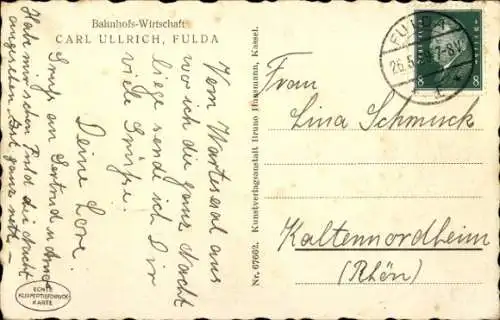 Bahnhofs-Wirtschaft
CARL ULLRICH, FULDA
Vom Wartesaal aus
wo ich die ganze Nacht
liege sende ich Dir
viele Grüße.
Deine Lore.
Gruß an Gertrud u.
Hab mir schon Fulda die Nacht
angesehen. Ist ganz nett –
ECHTE
KUPFERTIEFDRUCK
KARTE
Nr. 67662. Kunstverlagsanstalt Bruno Hansmann, Kassel.
FULDA
26.5
7-8V
8 8
Frau
Lina Schmuck
Kaltennordheim
(Rhön)